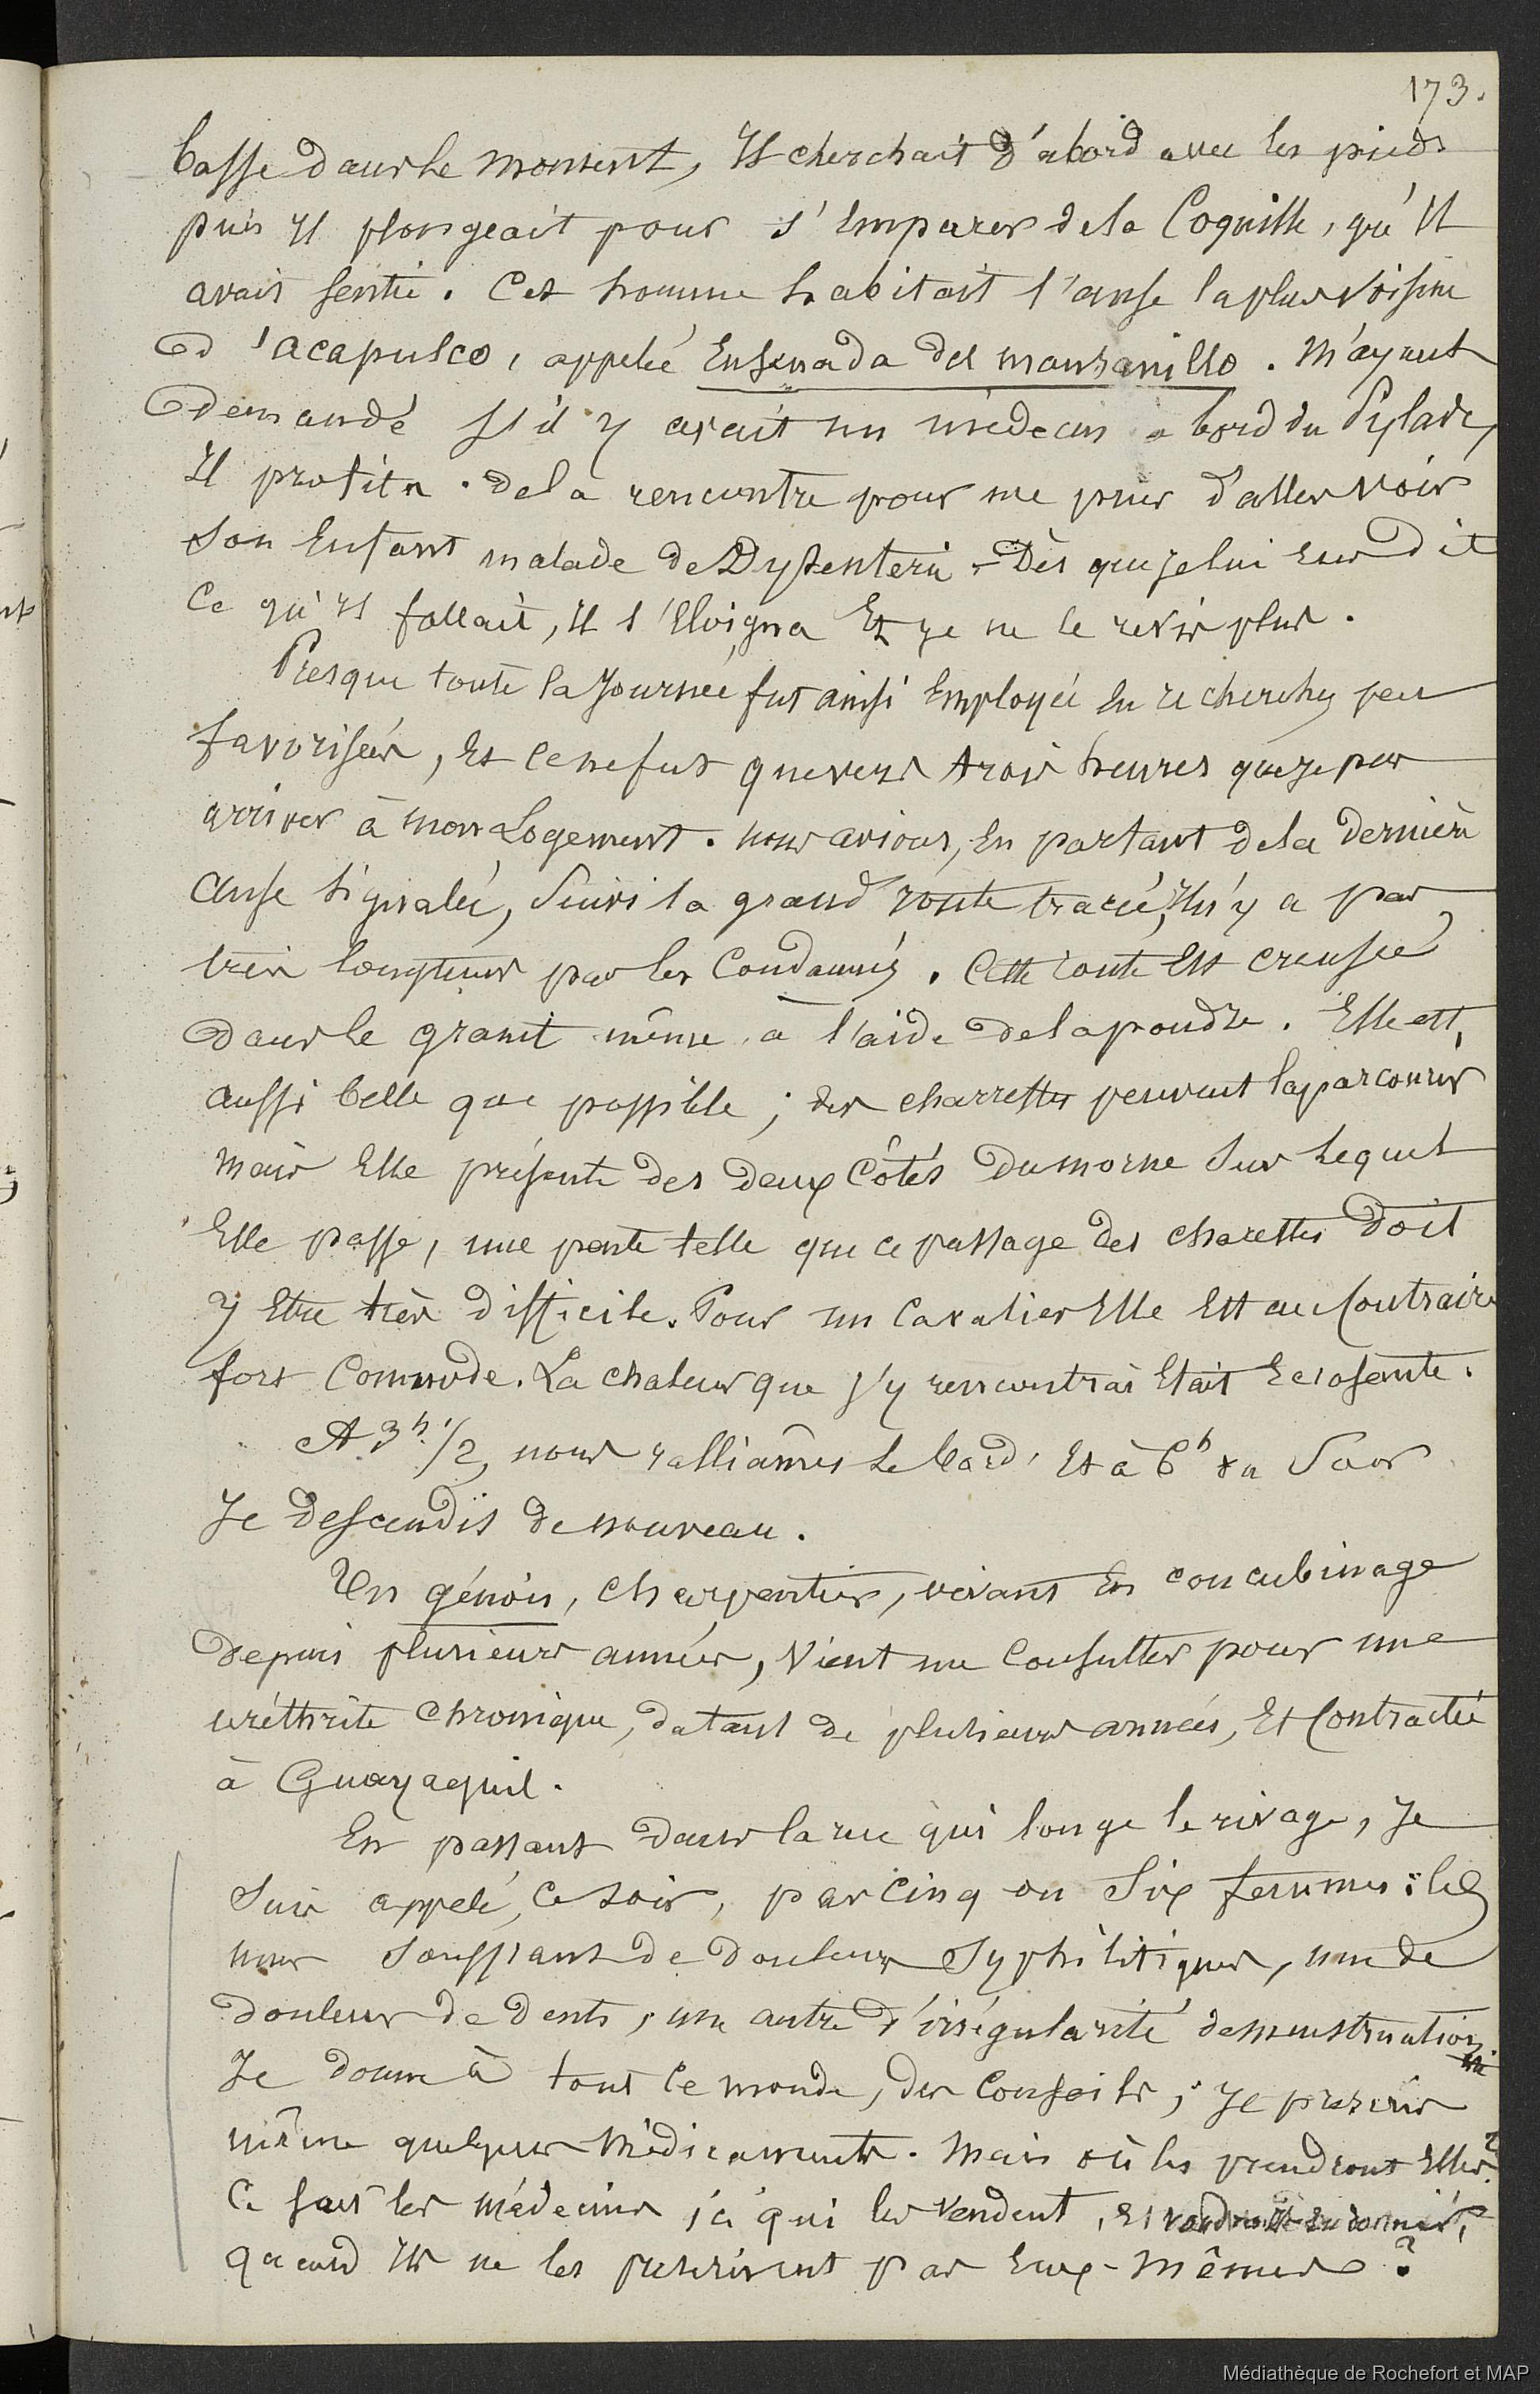 173.
basse dans le moment, Il cherchait d'abord avec les pieds
puis Il plongeait pour s'emparer de la Coquille, qu'Il
avait sentie. Cet homme habitait l'anse la plus voisine
d'acapulco, appelée Ensenada del manzanillo. M'ayant
demandé s'il y avait un médecin a bord du Pylade,
Il profita de la rencontre pour me prier d'aller voir
son Enfant malade de Dysenterie. Dès que je lui eus dit
Ce qu'Il fallait, Il s'Eloigna Et je ne le revis plus.
Presque toute la Journée fut ainsi Employée En recherches peu
favorisées, Et Ce ne fut que vers trois heures que je pus
arriver à mon Logement. nous avions, En partant de la dernière
anse signalée, Suivi la grand route tracée, Il n'y a pas
très longtems par les Condamnés. Cette route Est creusée
dans le granit même à l'aide de la poudre. Elle est,
aussi belle que possible; des charrettes peuvent la parcourir
mais Elle présente des deux Côtés du morne Sur lequel
Elle passe, une pente telle que ce passage des charettes doit
y Etre très difficile. Pour un Cavalier Elle Est au Contraire
fort Commode. La chaleur que j'y rencontrai Etait Ecrasante.
A 3h. 1/2, nous ralliâmes le bord, Et à 6h du Soir
Je descendis de nouveau.
Un génois, charpentier, vivant En concubinage
depuis plusieurs années, Vient me Consulter pour une
uréthrite chronique, datant de plusieurs années, Et Contractée
à Guayaquil.
En passant dans la rue qui longe le rivage, Je
Suis appelé, Ce soir, par Cinq ou Six femmes: les
unes Souffrant de douleurs Syphilitiques, une de
douleurs de dents, une autre d'irrégularité de menstruation.
Je donne à tout Ce monde, des Conseils; Je prescris
même quelques Médicaments. Mais où les prendront Elles?
Ce sont les médecins ici qui les vendent, Et voudront-Ils En donner,
quand Ils ne les prescrivent pas Eux-mêmes?
Médiathèque de Rochefort et MAP